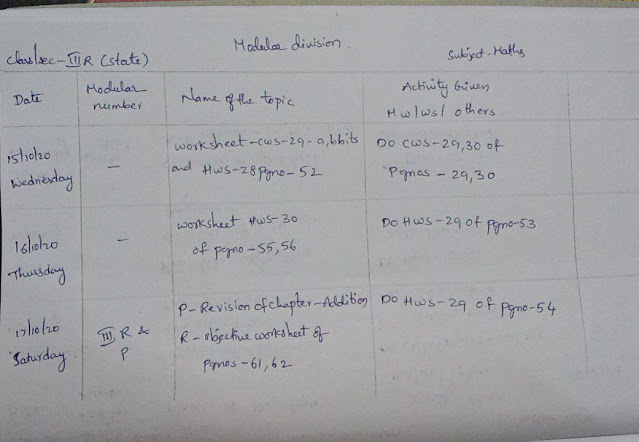 Modular division.
Class/sec - III R (state)
Subject - Maths
Date
Modular number
Name of the topic
Activity Given
HW/WS/ others.
15/10/20
Wednesday
—
worksheet - cws - 29 - a, b bits
and HWS - 28 Pgno - 52
Do CWS - 29,30 of
Pgnos - 29,30
16/10/20
Thursday
—
worksheet HWS - 30
of pgno - 55, 56
Do HWS - 29 of pgno - 53
17/10/20
Saturday.
III R &
P
P - Revision of chapter - Addition
R - objective worksheet of
Pgnos - 61, 62
Do HWS - 29 of pgno - 54